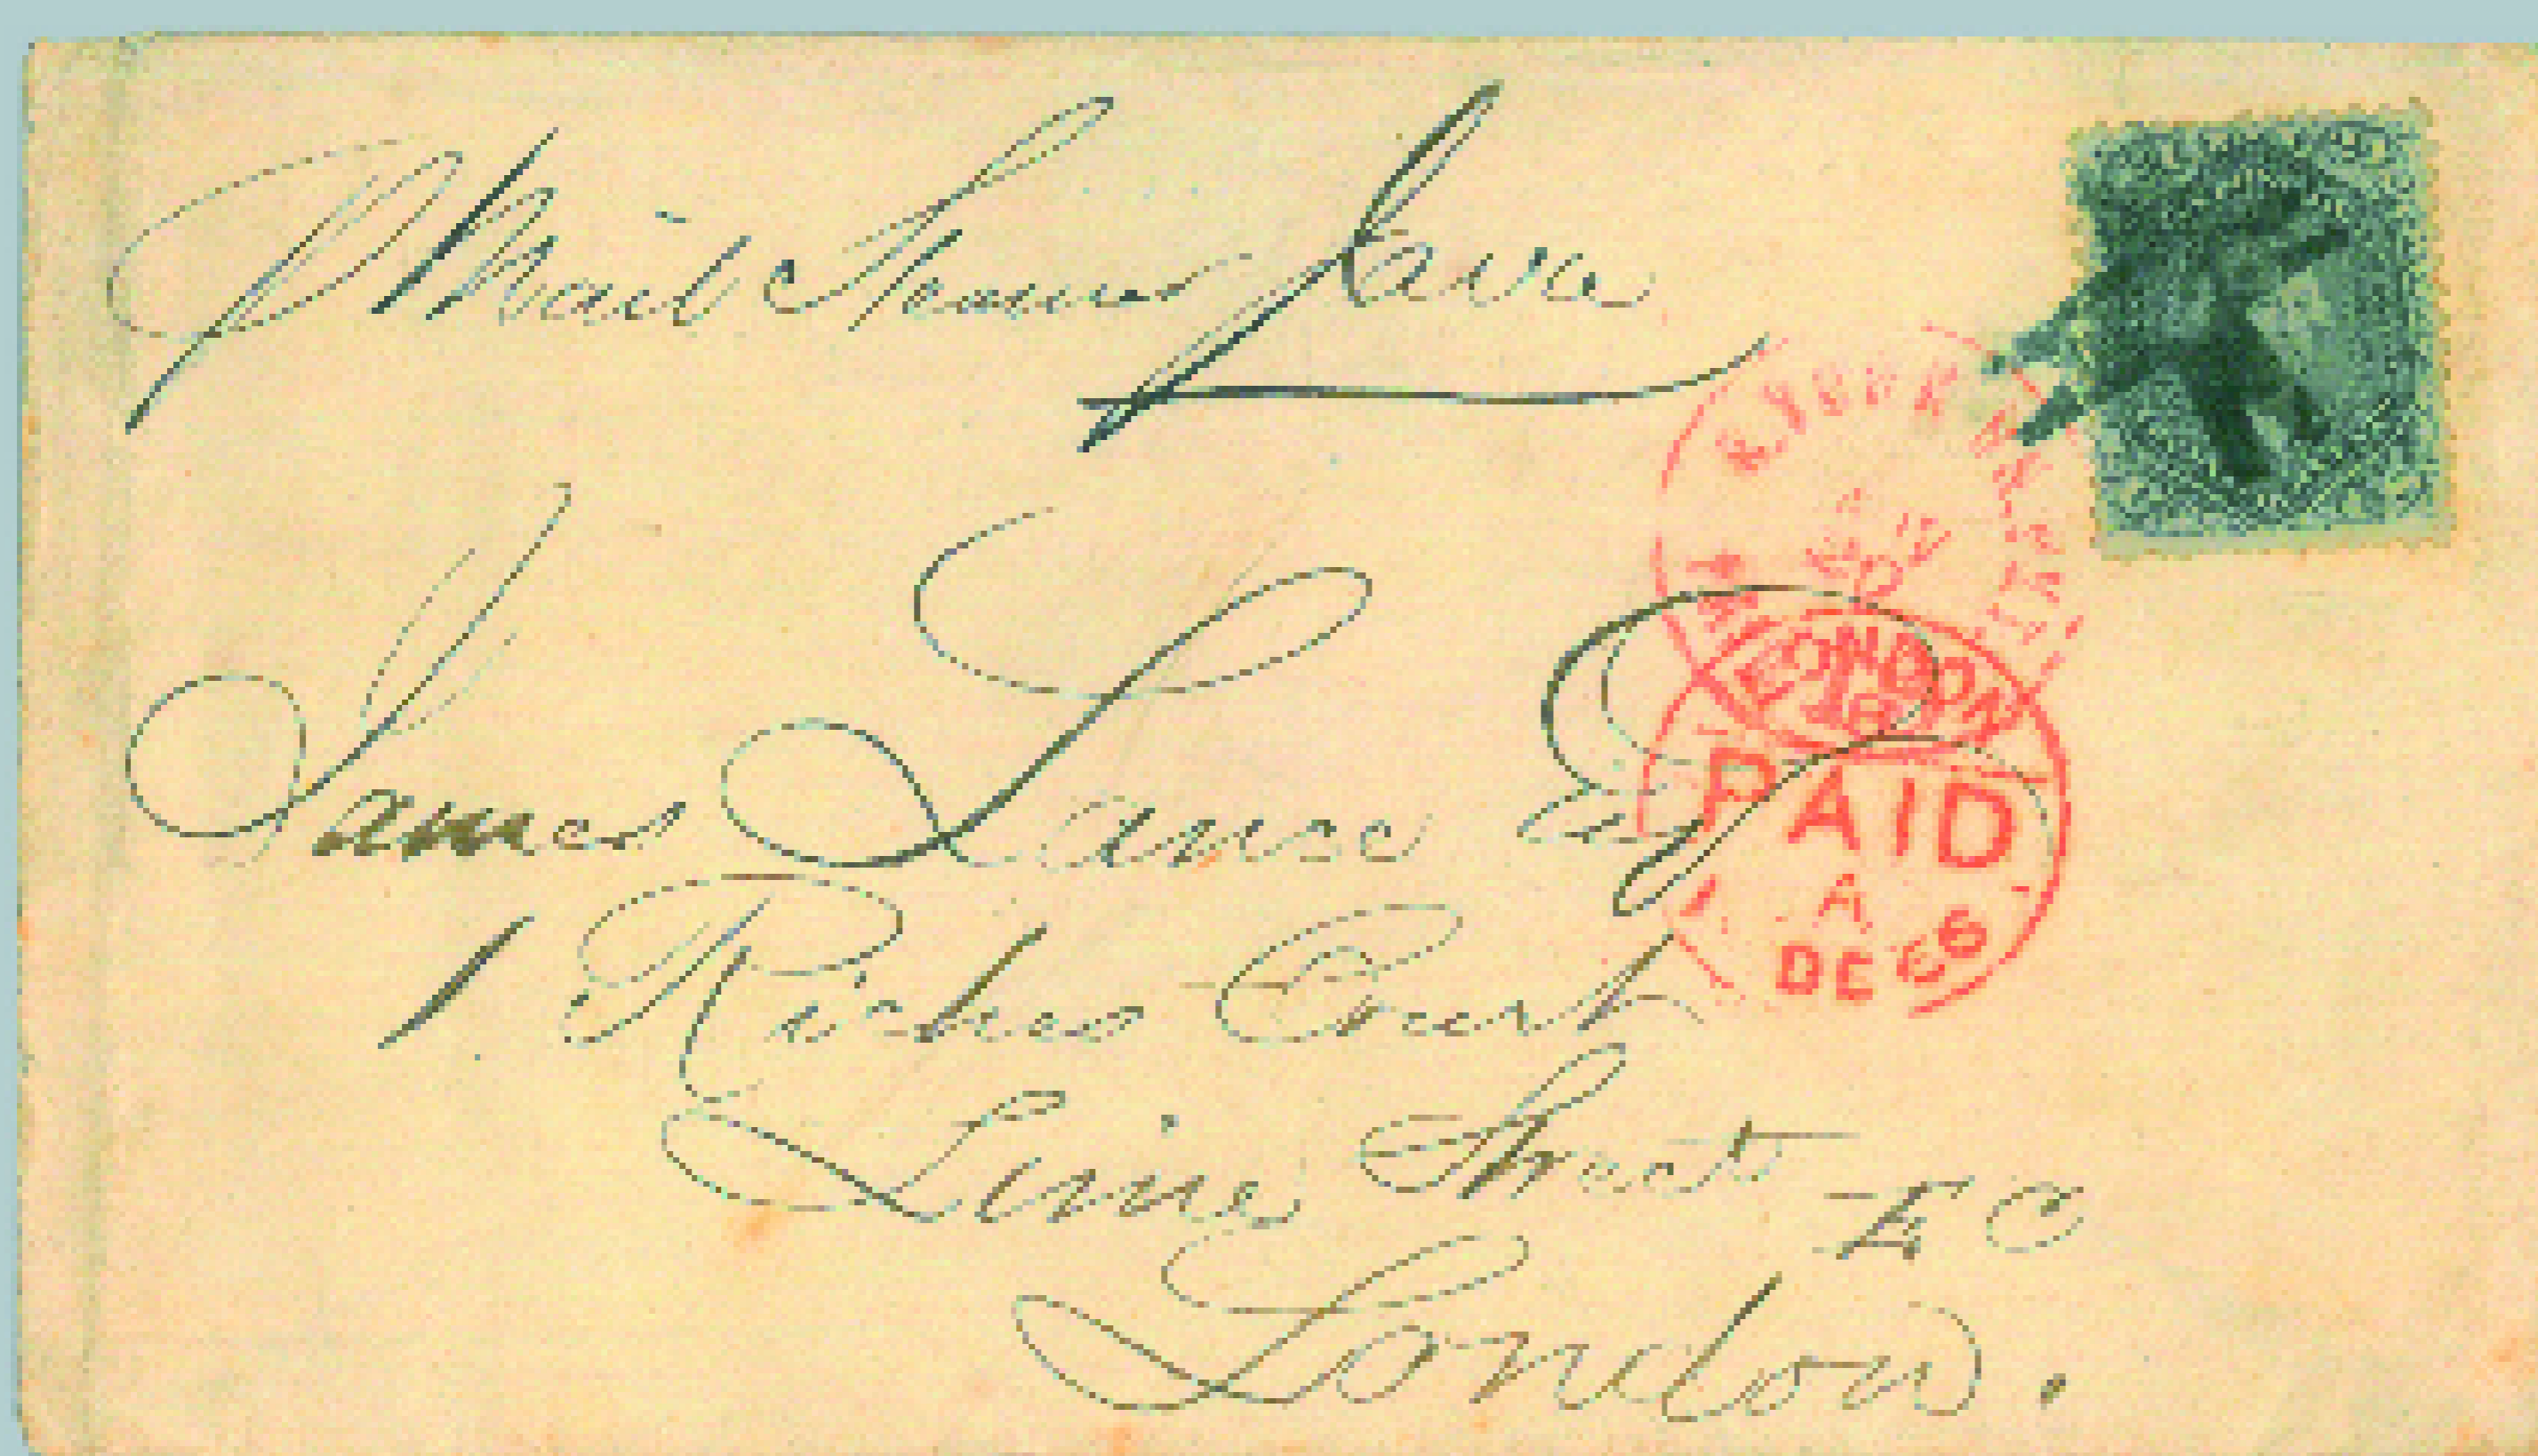 p Mail Steamer Java
James Lance Esq
1 Riches Court
Lime Street
E C
London.
LONDON
PAID
A
DE 6